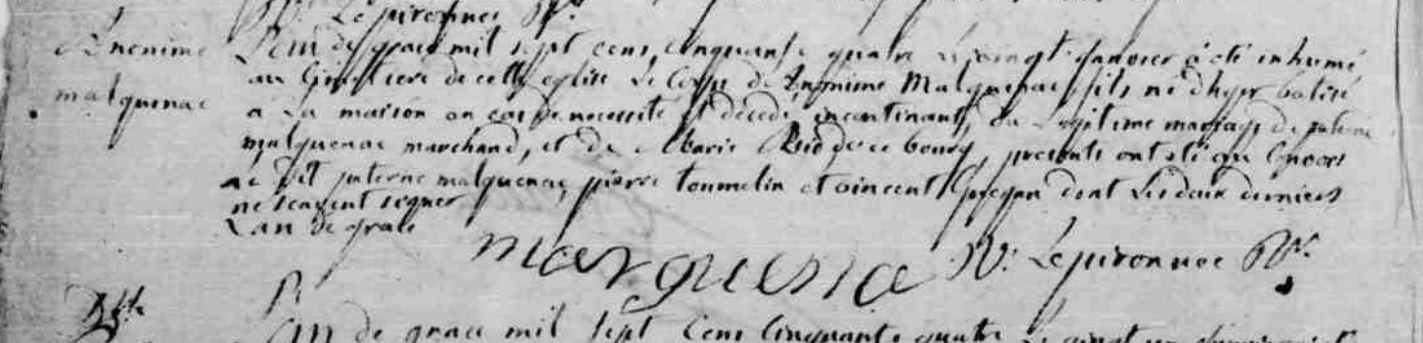 Lepironnec
Anonime
malquenac
L'an de grace mil sept cens cinquante quatre le vingt janvier a été inhumé
au Cimitiere de cette eglise Le Corps d'Anonime Malquenac, fils né d'hyer batisé
a La maison en cas de necessité et décédé incontinant, du Legitime mariage de
malquenac marchand, et de Marie de ce bourg, presents ont été au Convoi
Le dit malquenac, pierre toumelin et vincent dont Les deux derniers
ne scavent signer
L'an de grace
marquena N: Lepironnec
L'an de grace mil sept Cens Cinquante quatre Le vingt